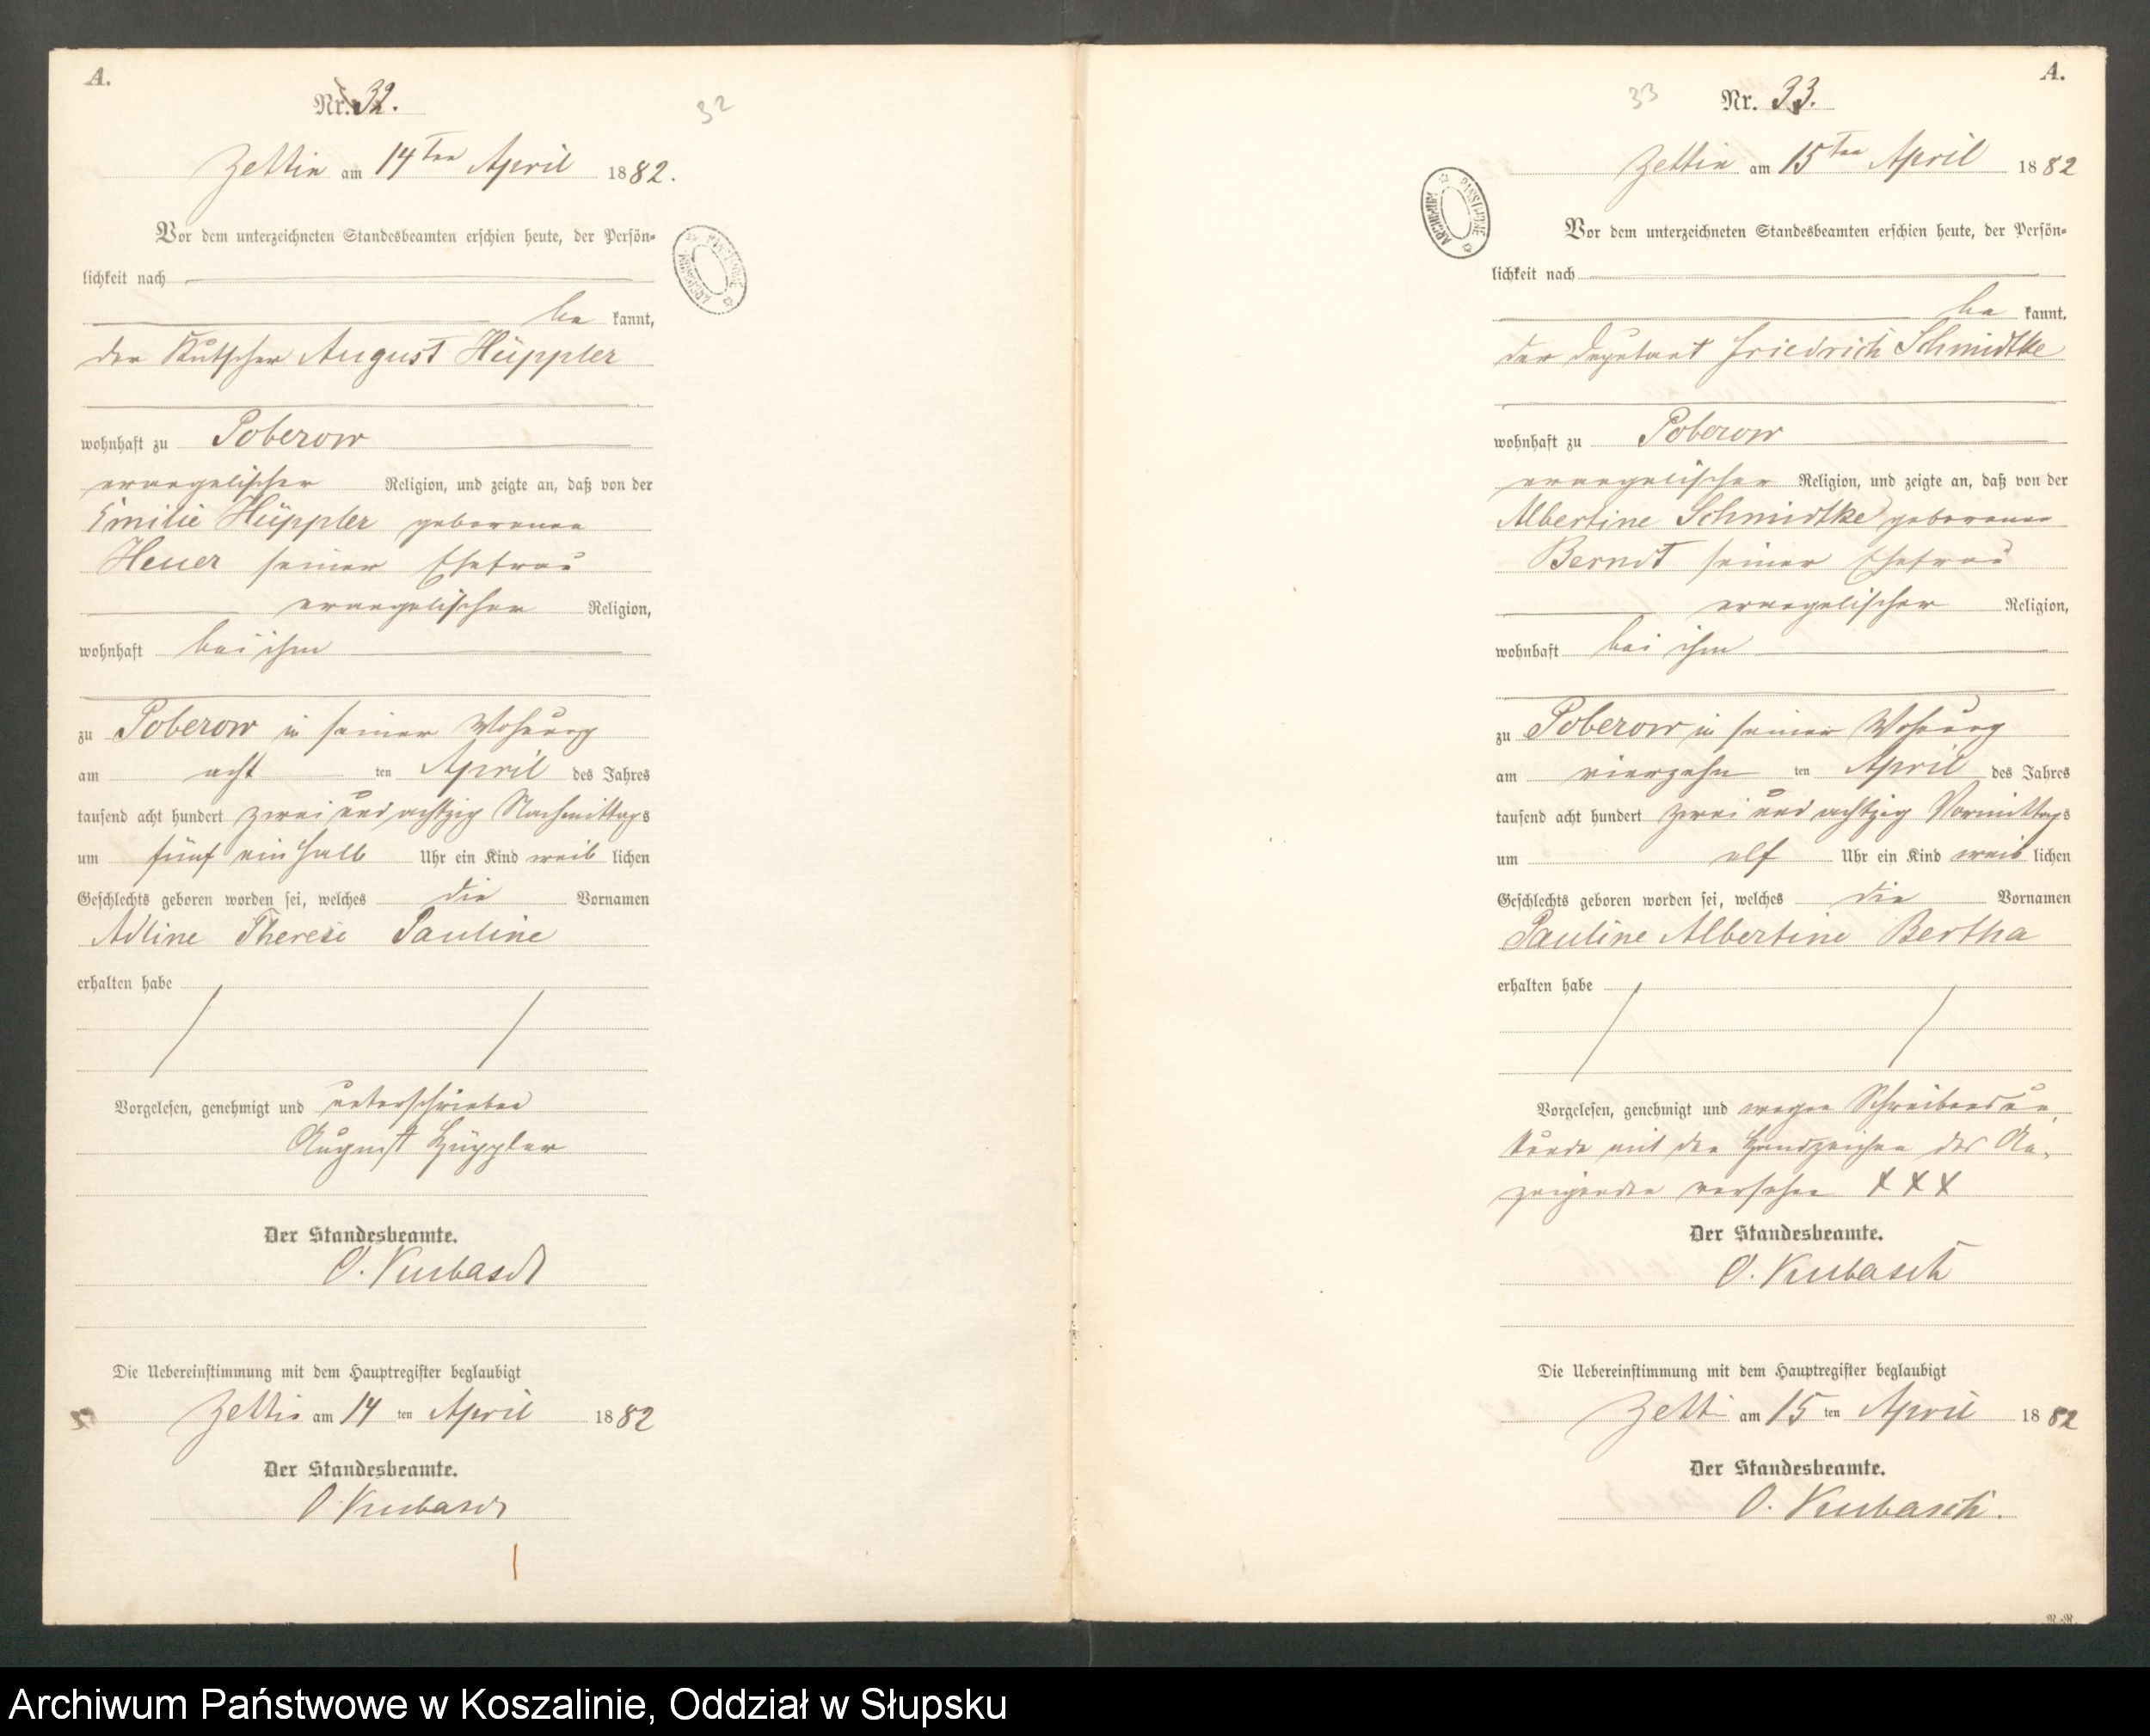 A.
Nr. 32.
32
Zettin am 14ten April 1882.
Vor dem unterzeichneten Standesbeamten erschien heute, der Persön-
lichkeit nach
be kannt,
der Kutscher August Hüppler
wohnhaft zu Poberow
evangelischer Religion, und zeigte an, daß von der
Emilie Hüppler geborenen
Heuer seiner Ehefrau
evangelischer Religion,
wohnhaft bei ihm
zu Poberow in seiner Wohnung
am acht ten April des Jahres
tausend acht hundert zwei und achtzig Nachmittags
um fünf ein halb Uhr ein Kind weib lichen
Geschlechts geboren worden sei, welches die Vornamen
Adline Therese Pauline
erhalten habe
Vorgelesen, genehmigt und unterschrieben
August Hüppler
Der Standesbeamte.
O. Kubasch
Die Uebereinstimmung mit dem Hauptregister beglaubigt
Zettin am 14 ten April 1882
Der Standesbeamte.
O. Kubasch
A.
33
Nr. 33.
Zettin am 15ten April 1882
ARCHIWUM PAŃSTWOWE
Vor dem unterzeichneten Standesbeamten erschien heute, der Persön-
lichkeit nach
be kannt,
der Deputant Friedrich Schmidtke
wohnhaft zu Poberow
evangelischer Religion, und zeigte an, daß von der
Albertine Schmidtke geborenen
Berndt seiner Ehefrau
evangelischer Religion,
wohnhaft bei ihm
zu Poberow in seiner Wohnung
am vierzehn ten April des Jahres
tausend acht hundert zwei und achtzig Vormittags
um elf Uhr ein Kind weib lichen
Geschlechts geboren worden sei, welches die Vornamen
Pauline Albertine Bertha
erhalten habe
Vorgelesen, genehmigt und wegen Schreibensun-
kunde mit den Handzeichen des An-
zeigenden versehen XXX
Der Standesbeamte.
O. Kubasch
Die Uebereinstimmung mit dem Hauptregister beglaubigt
Zettin am 15 ten April 1882
Der Standesbeamte.
O. Kubasch.
Archiwum Państwowe w Koszalinie, Oddział w Słupsku